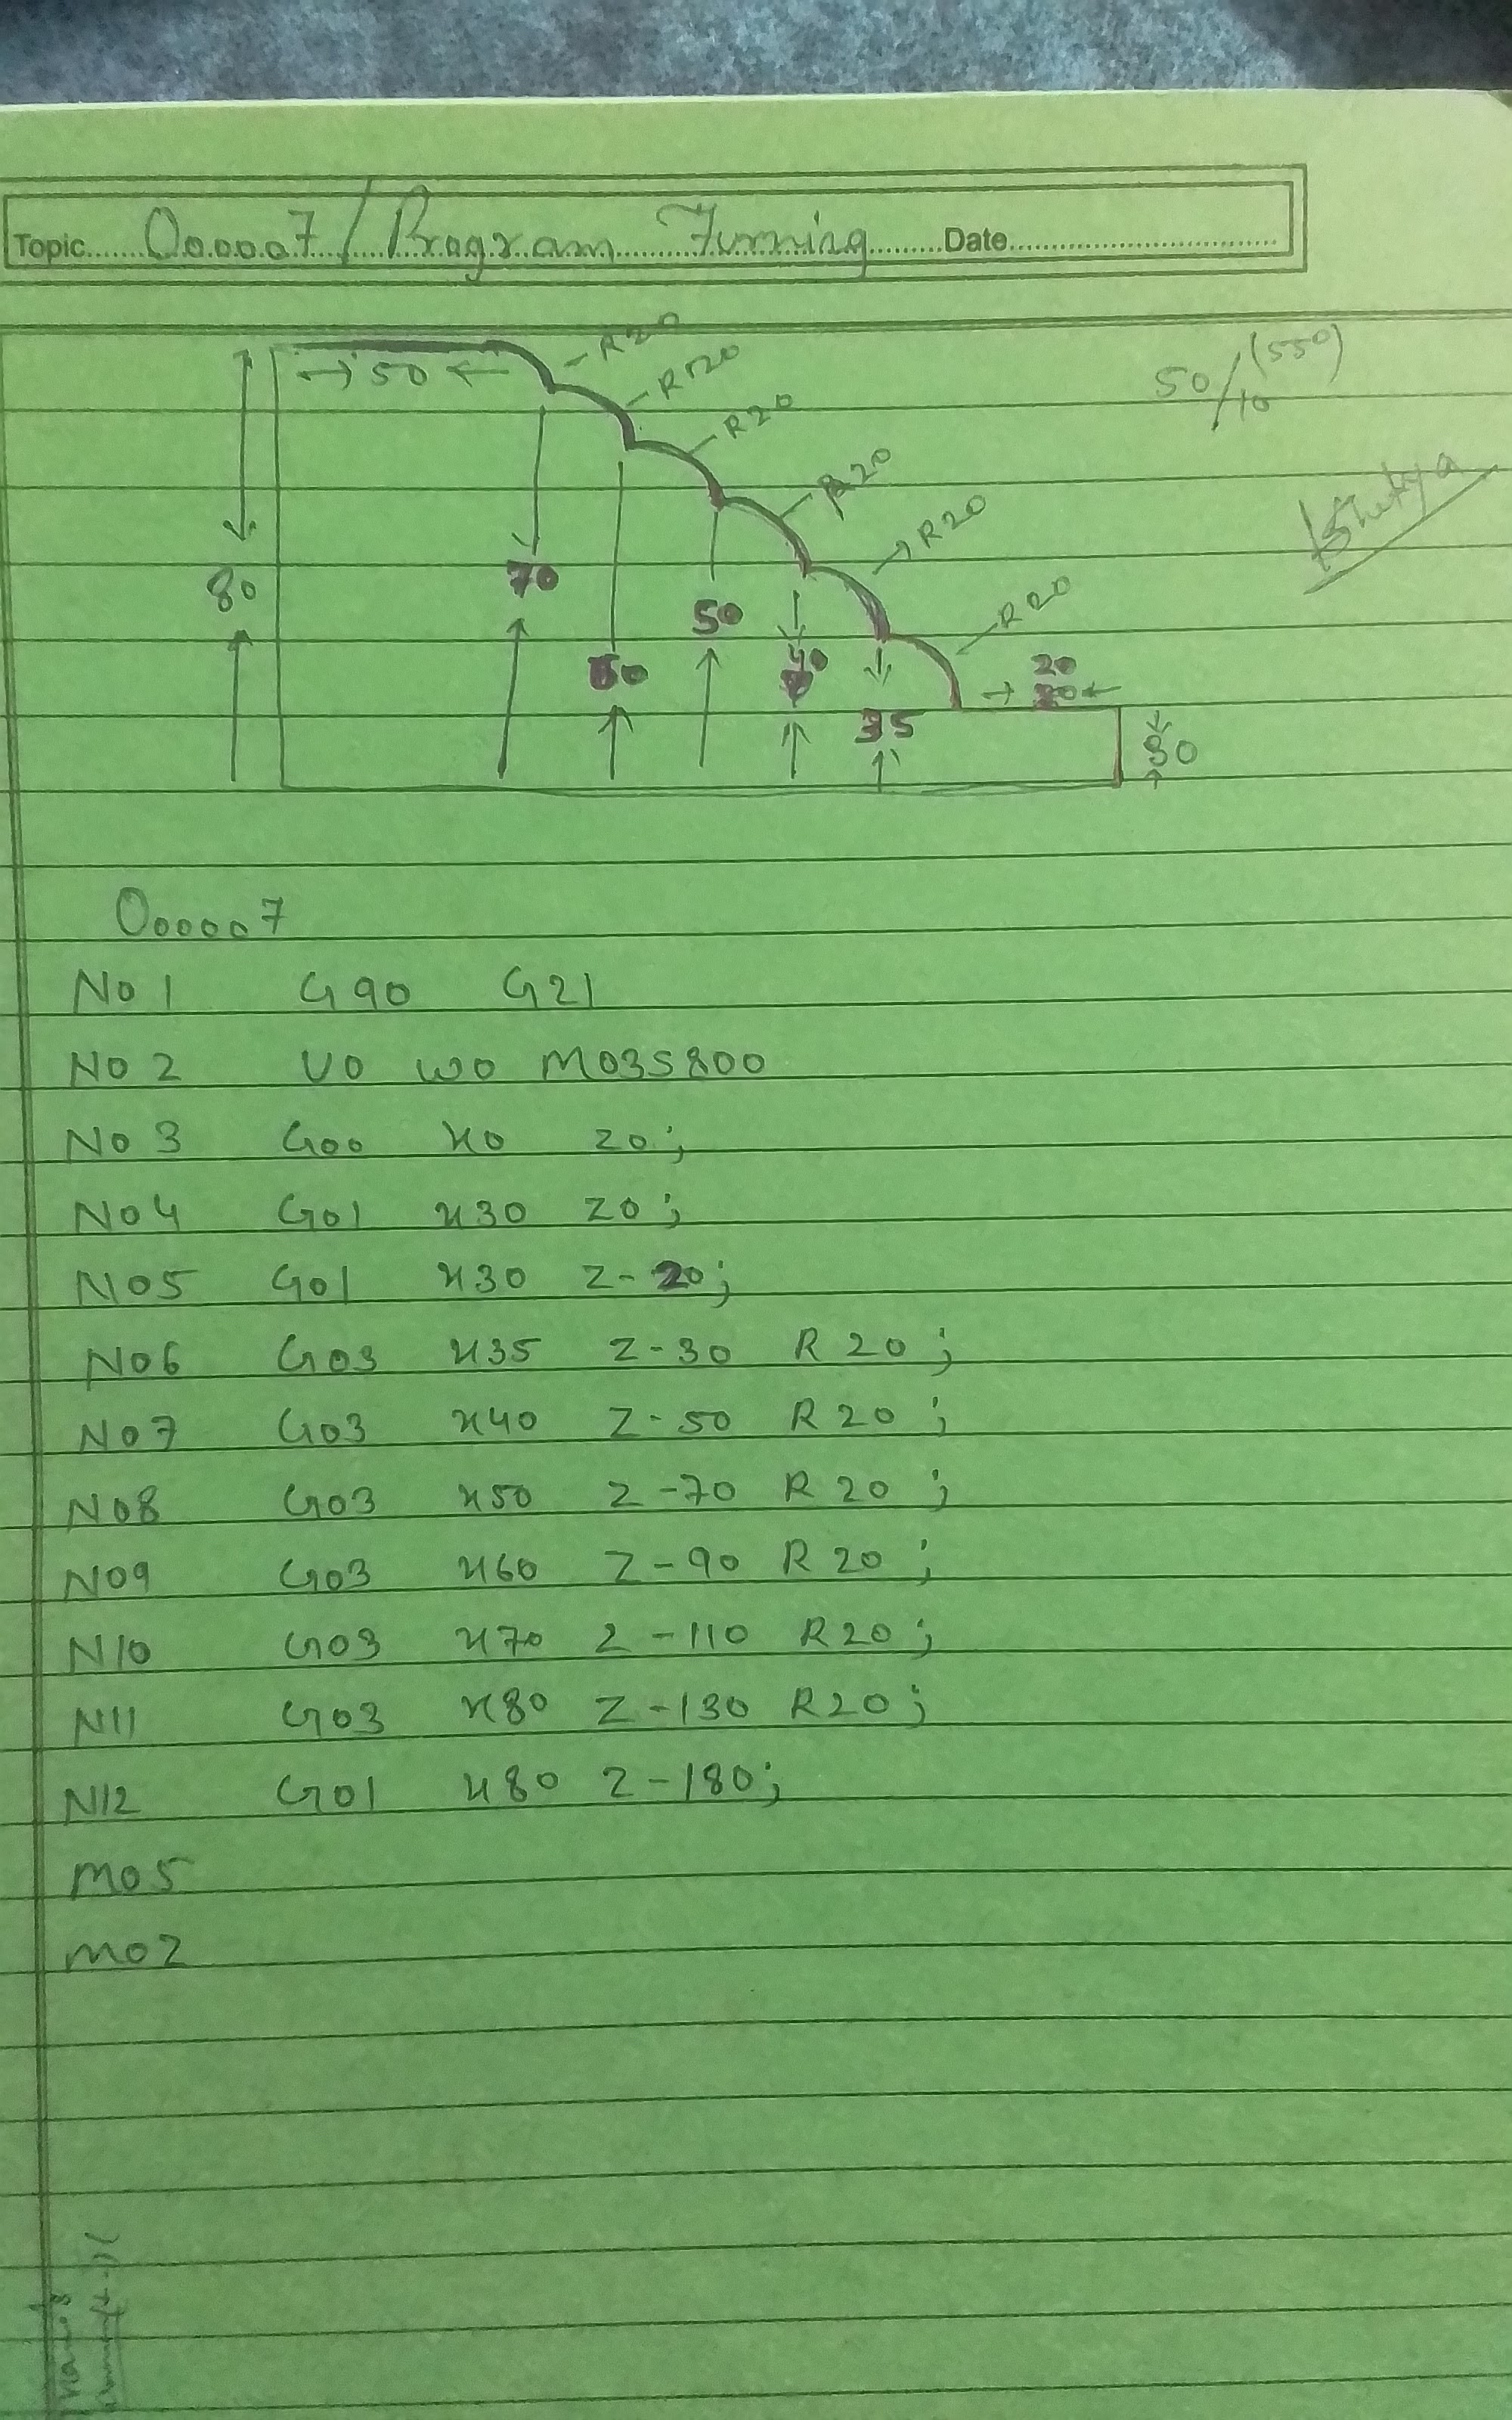 Topic O00007 / Program Turning Date
R20
50
R20
50/10 (550)
R20
R20
R20
80
70
50
R20
60
40
20
20
35
30
O00007
N01 G90 G21
N02 U0 W0 M03S800
N03 G00 X0 Z0;
N04 G01 X30 Z0;
N05 G01 X30 Z-20;
N06 G03 X35 Z-30 R20;
N07 G03 X40 Z-50 R20;
N08 G03 X50 Z-70 R20;
N09 G03 X60 Z-90 R20;
N10 G03 X70 Z-110 R20;
N11 G03 X80 Z-130 R20;
N12 G01 X80 Z-180;
M05
M02